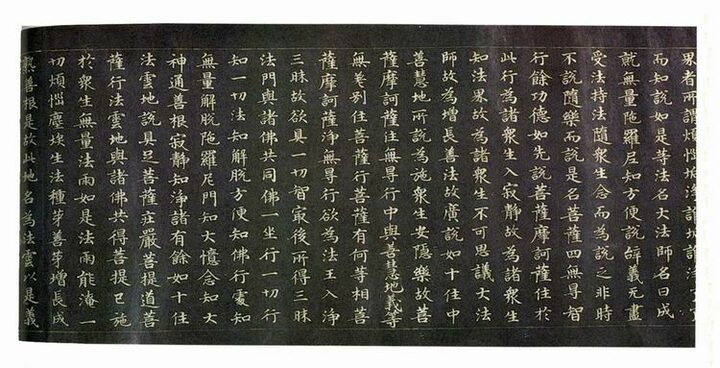 果者所謂煩惱
而知說如是等法名大法師名曰成
就無量陁羅尼知方便說辝義无盡
受法持法隨衆生念而為說之非時
不說隨樂而說是名菩薩四無㝵智
行餘功德如先說菩薩摩訶薩住於
此行為諸衆生入寂靜故為諸衆生
知法果故為諸衆生不可思議大法
師故為增長善法故廣說如十住中
善慧地所說為施衆生安隱樂故善
薩摩訶薩住無㝵行中與善慧地義等
無差別住菩薩行菩薩有何等相菩
薩摩訶薩淨無㝵行欲為法王入淨
三昧故欲具一切智最後所得三昧
法門與諸佛共同佛一坐行一切行
知一切法知解脫方便知佛行處知
無量解脫陁羅尼門知大憶念知大
神通善根寂靜知淨諸有餘如十住
法雲地說具足菩薩莊嚴菩提道菩
薩行法雲地與諸佛共得菩提已施
於衆生無量法雨如是法雨能淹一
切煩惱塵埃生法種芽善芽增長成
熟善根是故此地名為法雲以是義